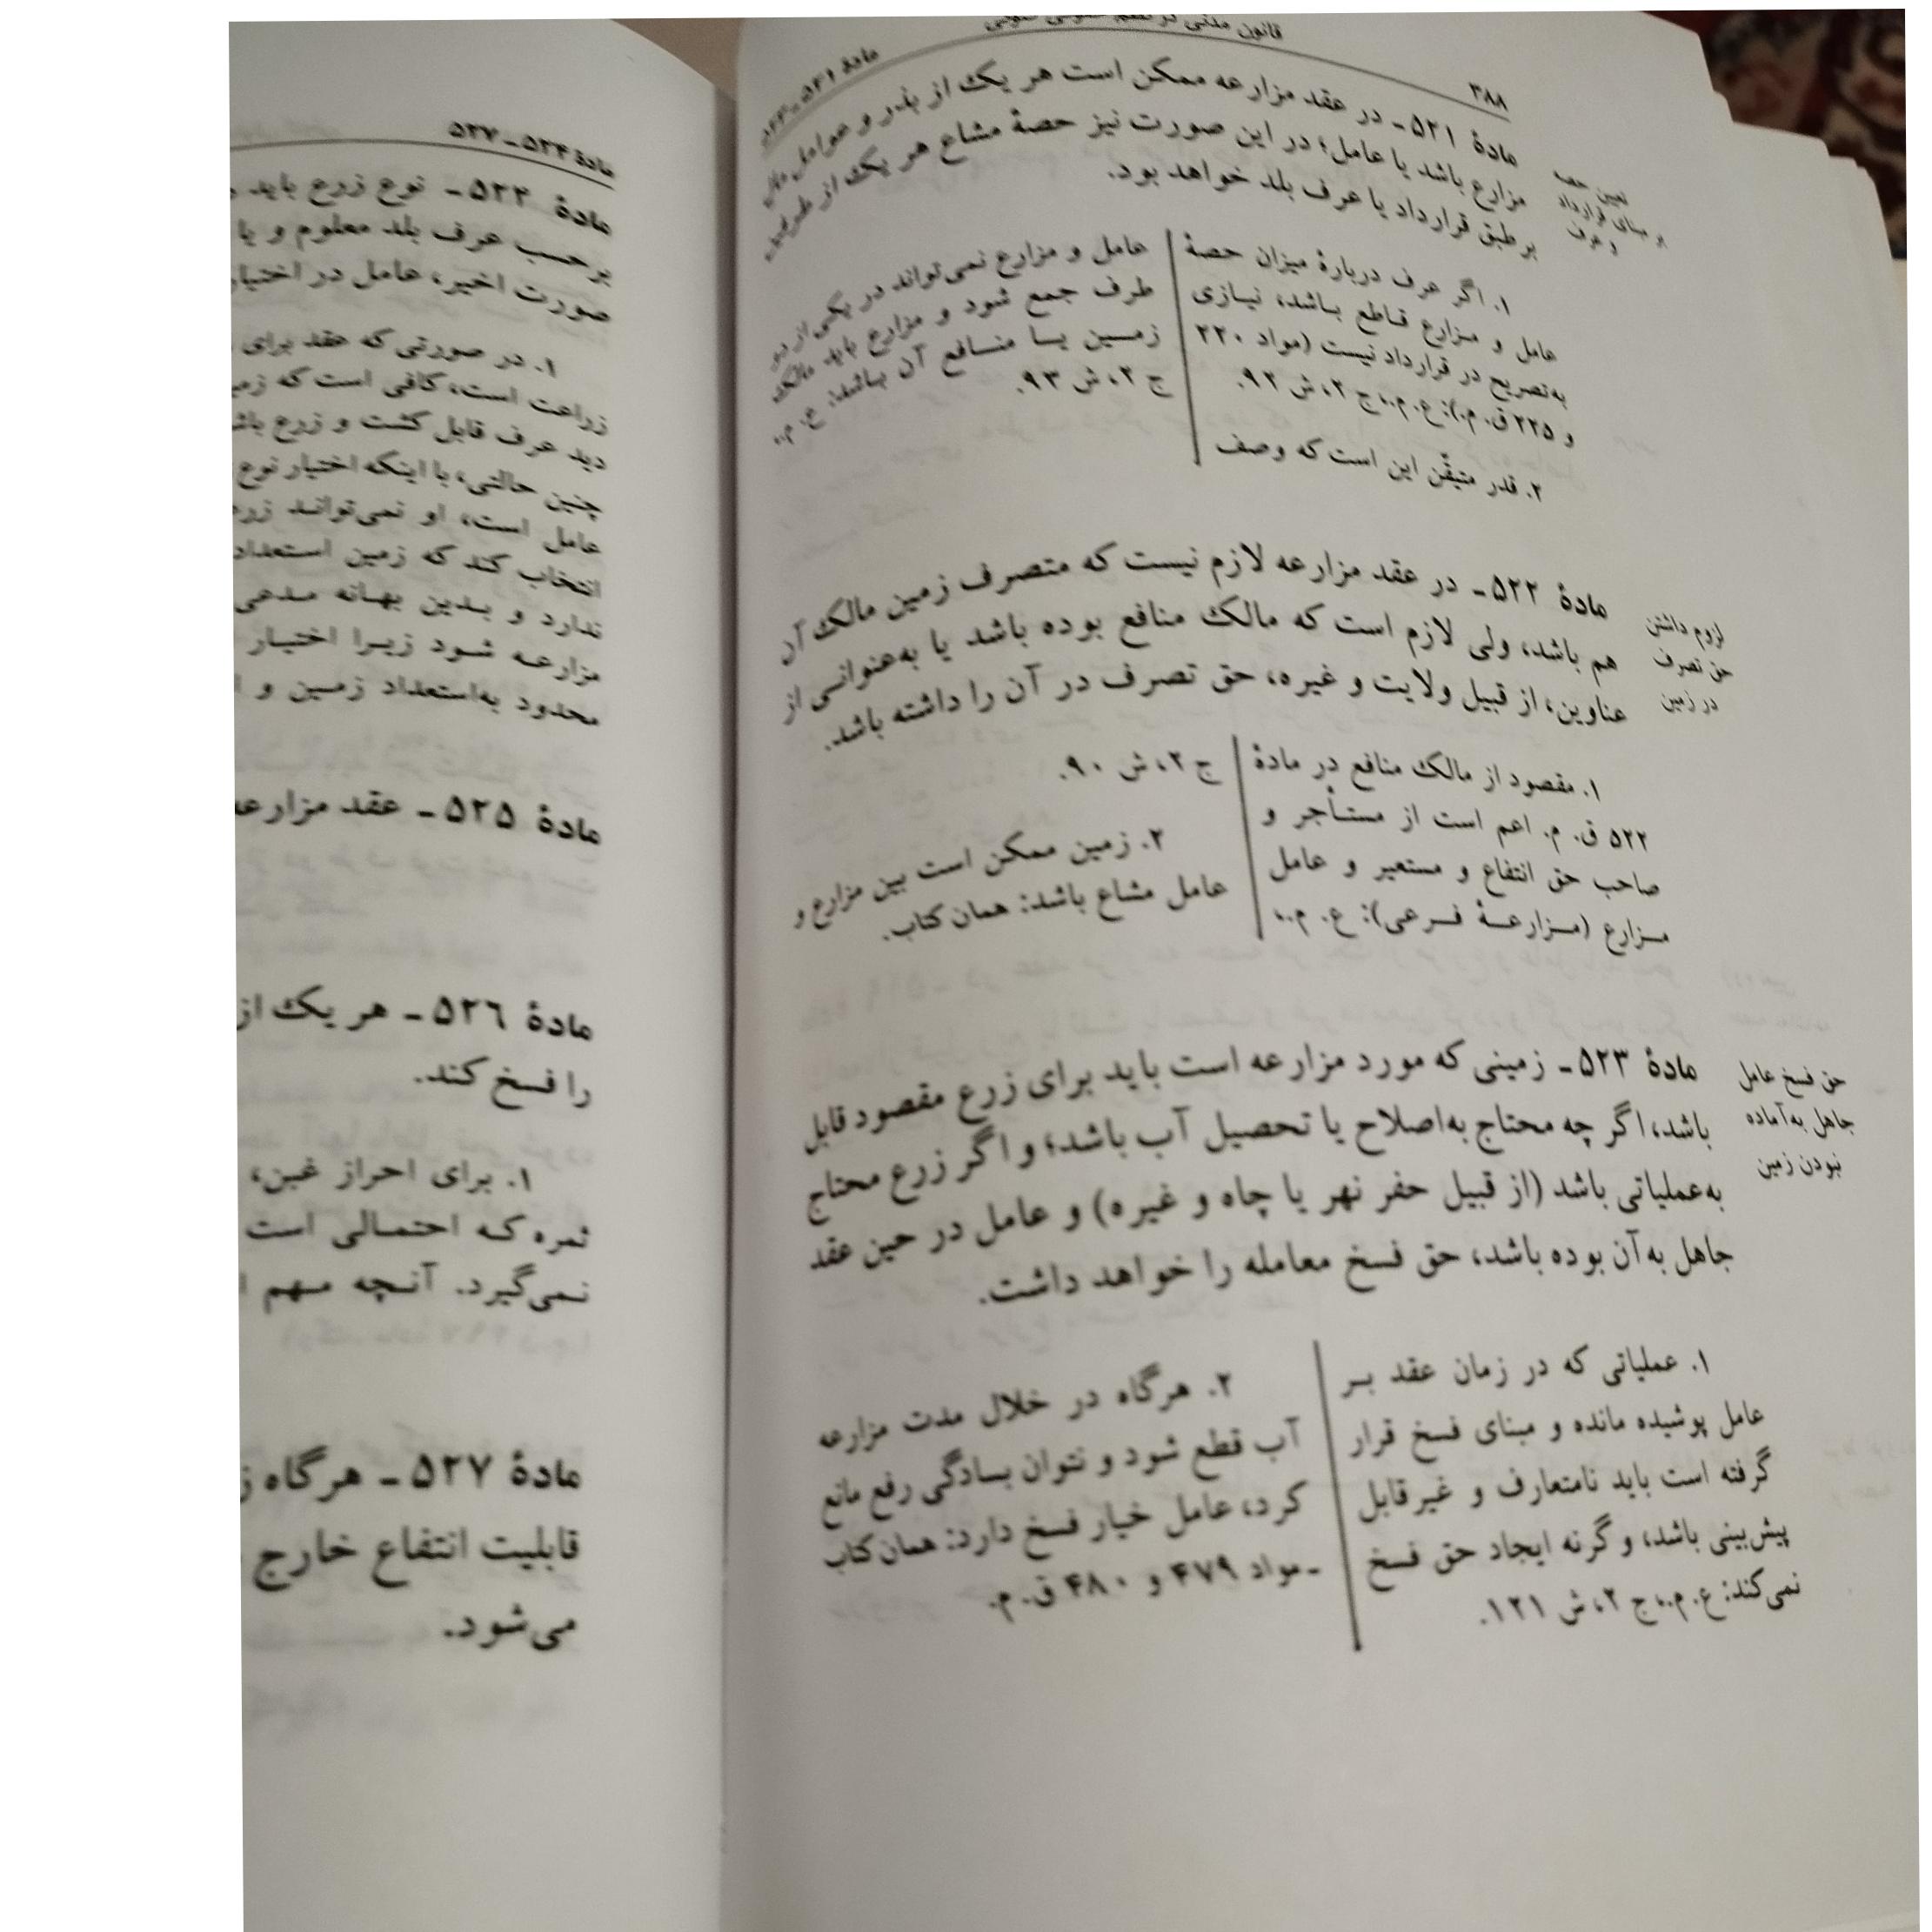 ۳۸۸
قانون مدنی در نظم حقوقی کنونی
مادهٔ ۵۲۱ـ۵۲۳
تعیین حصه
بر مبنای قرارداد
و عرف
مادهٔ ۵۲۱ـ در عقد مزارعه ممکن است هر یک از بذر و عوامل مال
مزارع باشد یا عامل؛ در این صورت نیز حصهٔ مشاع هر یک از طرفین
برطبق قرارداد یا عرف بلد خواهد بود.
۱. اگر عرف دربارهٔ میزان حصهٔ
عامل و مزارع قاطع باشد، نیازی
به‌تصریح در قرارداد نیست (مواد ۲۲۰
و ۲۲۵ ق. م.): ع. م.، ج ۲، ش ۹۲.
۲. قدر متیقّن این است که وصف
عامل و مزارع نمی‌تواند در یکی از دو
طرف جمع شود و مزارع باید مالک
زمین یا منافع آن باشد: ع. م.،
ج ۲، ش ۹۳.
لزوم داشتن
حق تصرف
در زمین
مادهٔ ۵۲۲ـ در عقد مزارعه لازم نیست که متصرف زمین مالک آن
هم باشد، ولی لازم است که مالک منافع بوده باشد یا به‌عنوانی از
عناوین، از قبیل ولایت و غیره، حق تصرف در آن را داشته باشد.
۱. مقصود از مالک منافع در مادهٔ
۵۲۲ ق. م. اعم است از مستأجر و
صاحب حق انتفاع و مستعیر و عامل
مزارع (مزارعهٔ فرعی): ع. م.،
ج ۲، ش ۹۰.
۲. زمین ممکن است بین مزارع و
عامل مشاع باشد: همان کتاب.
حق فسخ عامل
جاهل به آماده
نبودن زمین
مادهٔ ۵۲۳ـ زمینی که مورد مزارعه است باید برای زرع مقصود قابل
باشد، اگر چه محتاج به‌اصلاح یا تحصیل آب باشد؛ و اگر زرع محتاج
به‌عملیاتی باشد (از قبیل حفر نهر یا چاه و غیره) و عامل در حین عقد
جاهل به آن بوده باشد، حق فسخ معامله را خواهد داشت.
۱. عملیاتی که در زمان عقد بر
عامل پوشیده مانده و مبنای فسخ قرار
گرفته است باید نامتعارف و غیرقابل
پیش‌بینی باشد، و گرنه ایجاد حق فسخ
نمی‌کند: ع. م.، ج ۲، ش ۱۲۱.
۲. هرگاه در خلال مدت مزارعه
آب قطع شود و نتوان بسادگی رفع مانع
کرد، عامل خیار فسخ دارد: همان کتاب
ـ مواد ۴۷۹ و ۴۸۰ ق. م.
مادهٔ ۵۲۴ـ۵۲۷
مادهٔ ۵۲۴ـ نوع زرع باید
برحسب عرف بلد معلوم و یا
صورت اخیر، عامل در اختیار
۱. در صورتی که عقد برای
زراعت است، کافی است که
دید عرف قابل کشت و زرع
چنین حالتی، با اینکه اختیار نوع
عامل است، او نمی‌تواند
انتخاب کند که زمین استعداد
ندارد و بدین بهانه مدعی
مزارعه شود زیرا اختیار
محدود به‌استعداد زمین و
مادهٔ ۵۲۵ـ عقد مزارعه
مادهٔ ۵۲۶ـ هر یک از
را فسخ کند.
۱. برای احراز غبن،
ثمره که احتمالی است
نمی‌گیرد. آنچه مهم
مادهٔ ۵۲۷ـ هرگاه
قابلیت انتفاع خارج
می‌شود.